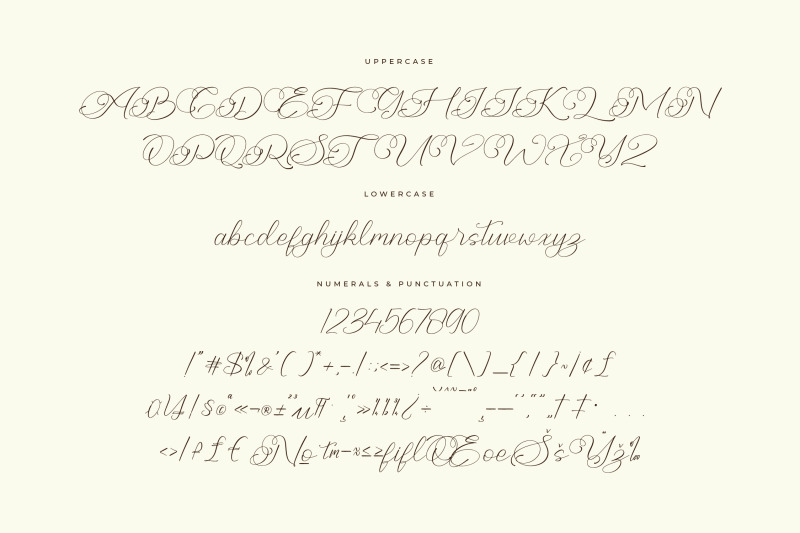 UPPERCASE
ABCDEFGHIJKLMN
OPQRSTUVWXYZ
LOWERCASE
abcdefghijklmnopqrstuvwxyz
NUMERALS & PUNCTUATION
1234567890
!"#$%&'()*+,-./:;<=>?@[\]_{|}~¦¢£
¤¥¦§©ª«¬®±²³µ¶·¸¹º»¼½¾¿÷
‹›⁄₣₤€№™−≈≤≥fiflŒœŠšŸž‰